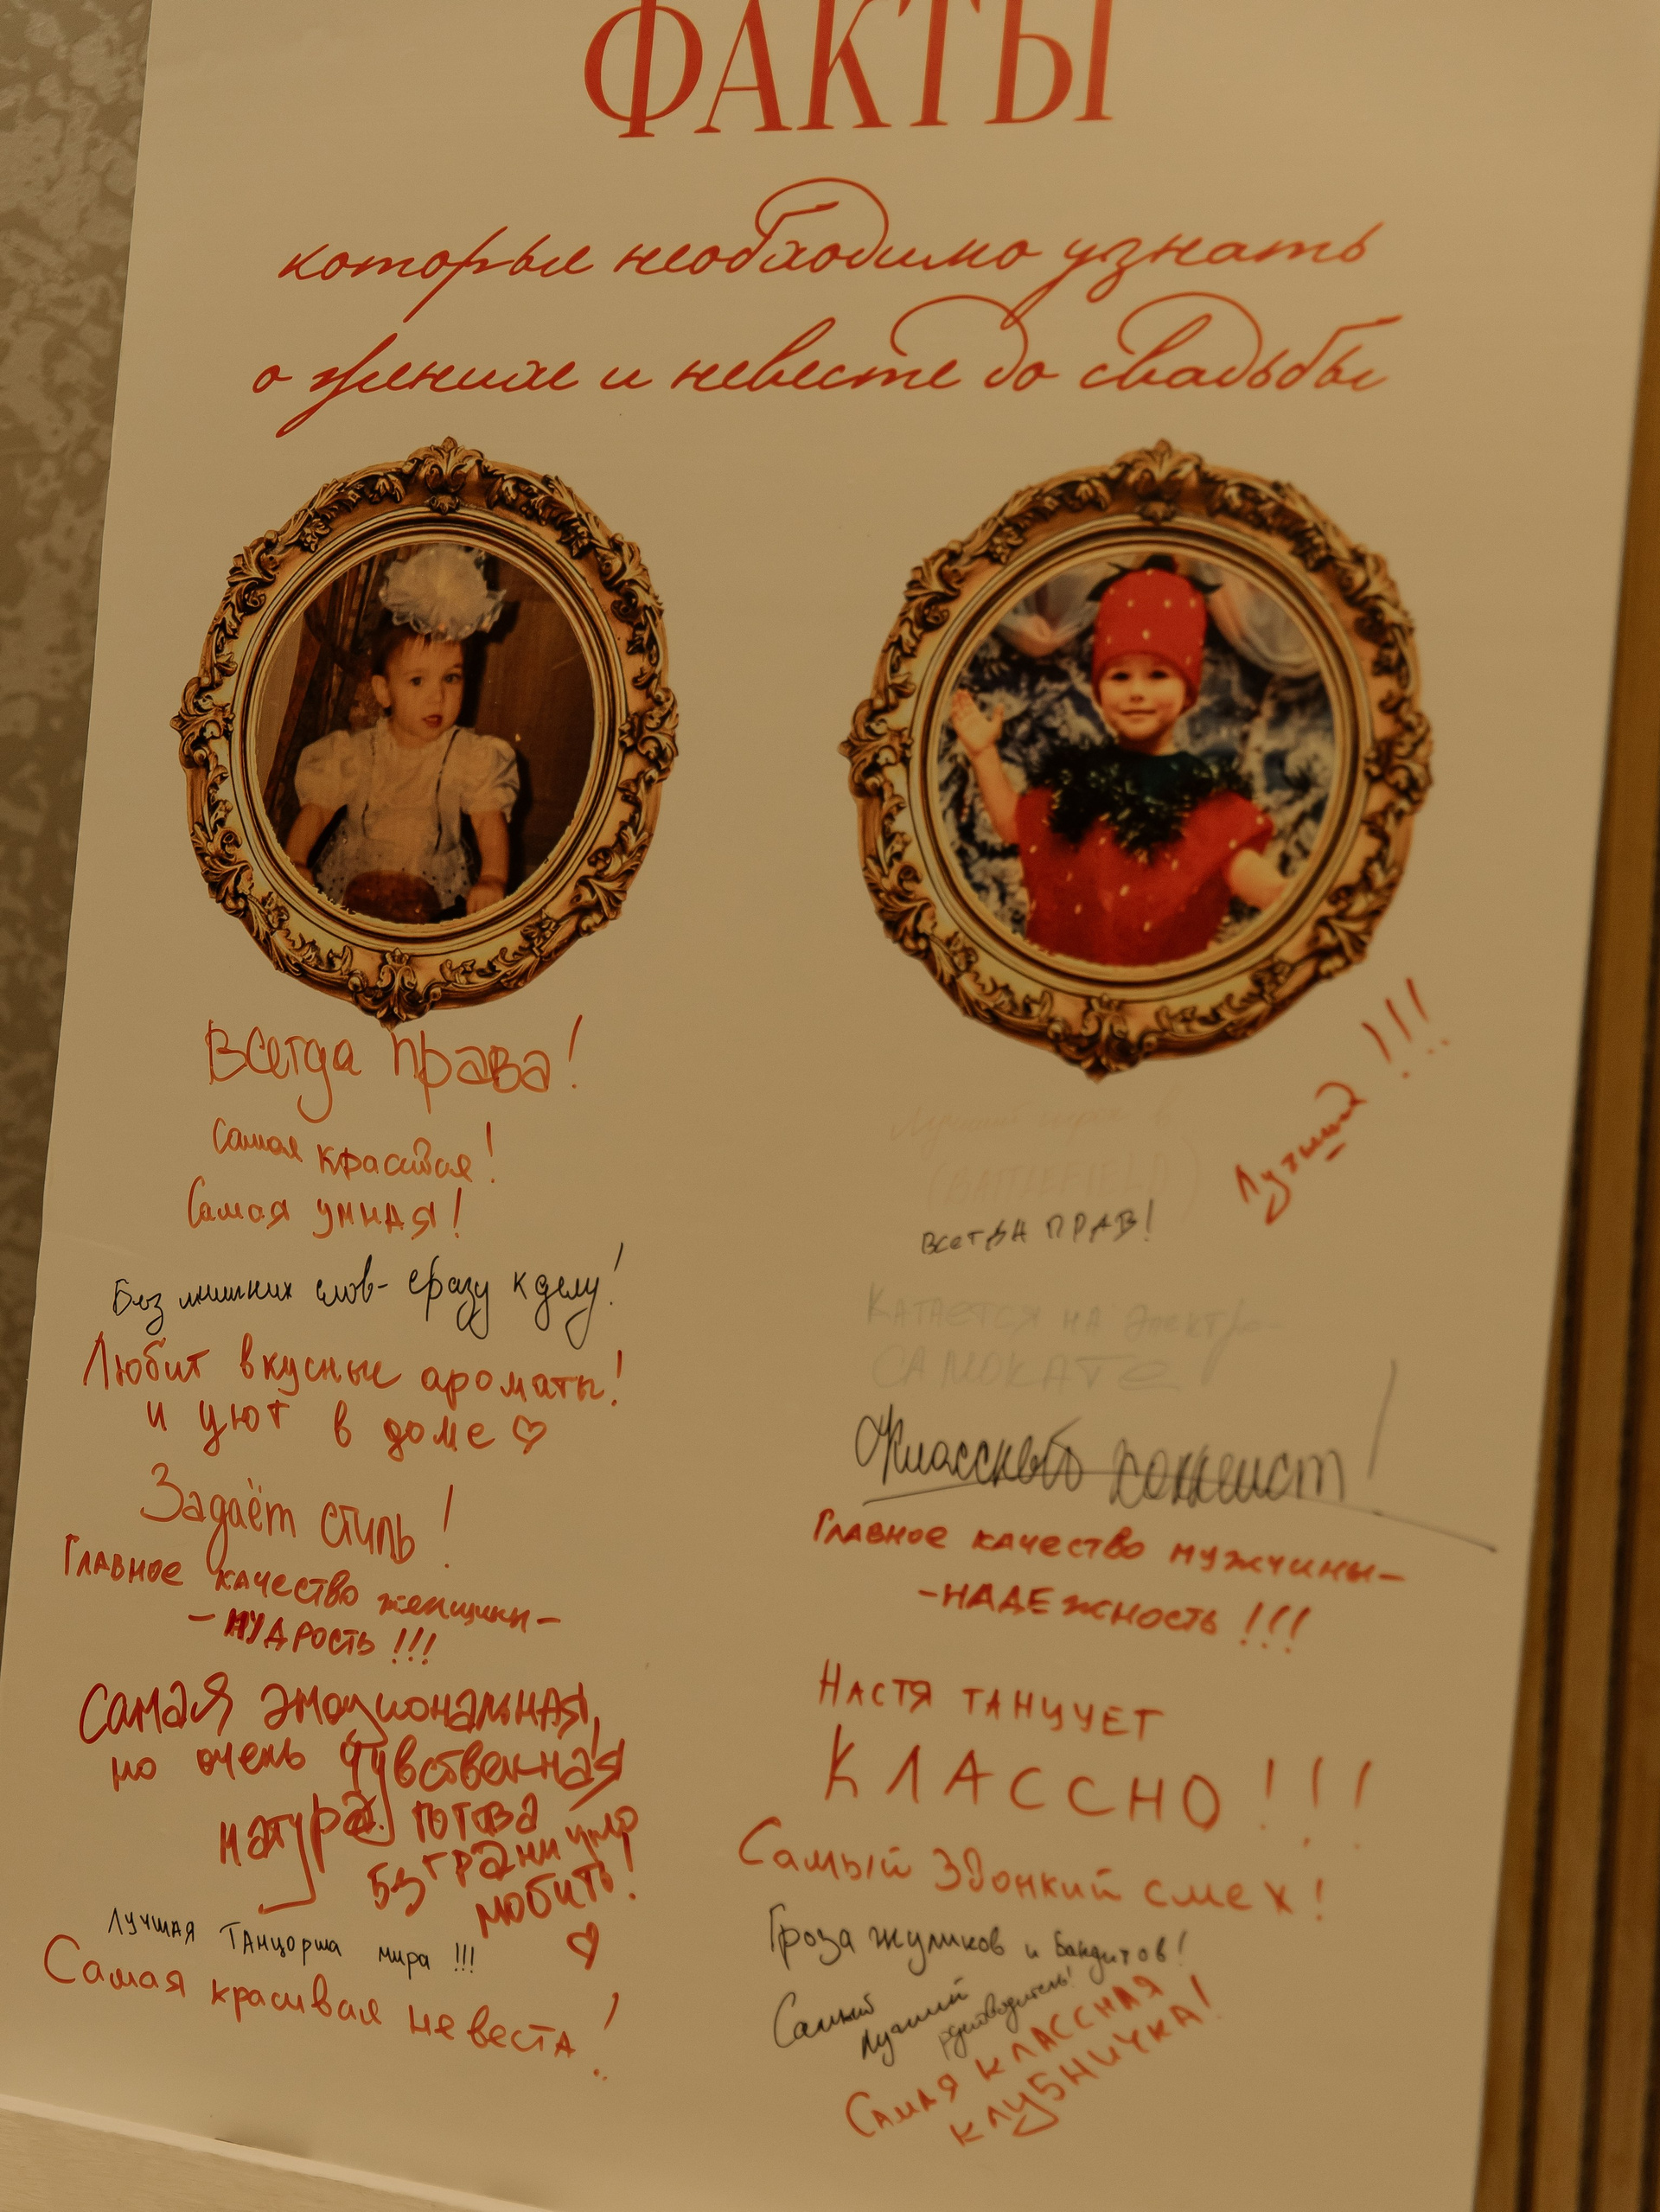 ФАКТЫ
которые необходимо узнать
о женихе и невесте до свадьбы
Всегда права!
Самая красивая!
Самая умная!
Без лишних слов- сразу к делу!
Любит вкусные ароматы!
и уют в доме ♡
Задаёт стиль!
Главное качество женщины-
-МУДРОСТЬ!!!
Самая эмоциональная,
но очень чувственная
натура. Готова
безгранично
любить!
♡
Лучшая танцорша мира!!!
Самая красивая невеста!
Лучший!!!
Лучший игрок в
(BATTLEFIELD)
всегда ПРАВ!
Катается на электро-
самокате
Классный хоккеист!
Главное качество мужчины-
-НАДЕЖНОСТЬ!!!
Настя танцует
КЛАССНО!!!
Самый звонкий смех!
Гроза жуликов и бандитов!
Самый
лучший
руководитель!
Самая классная
клубничка!